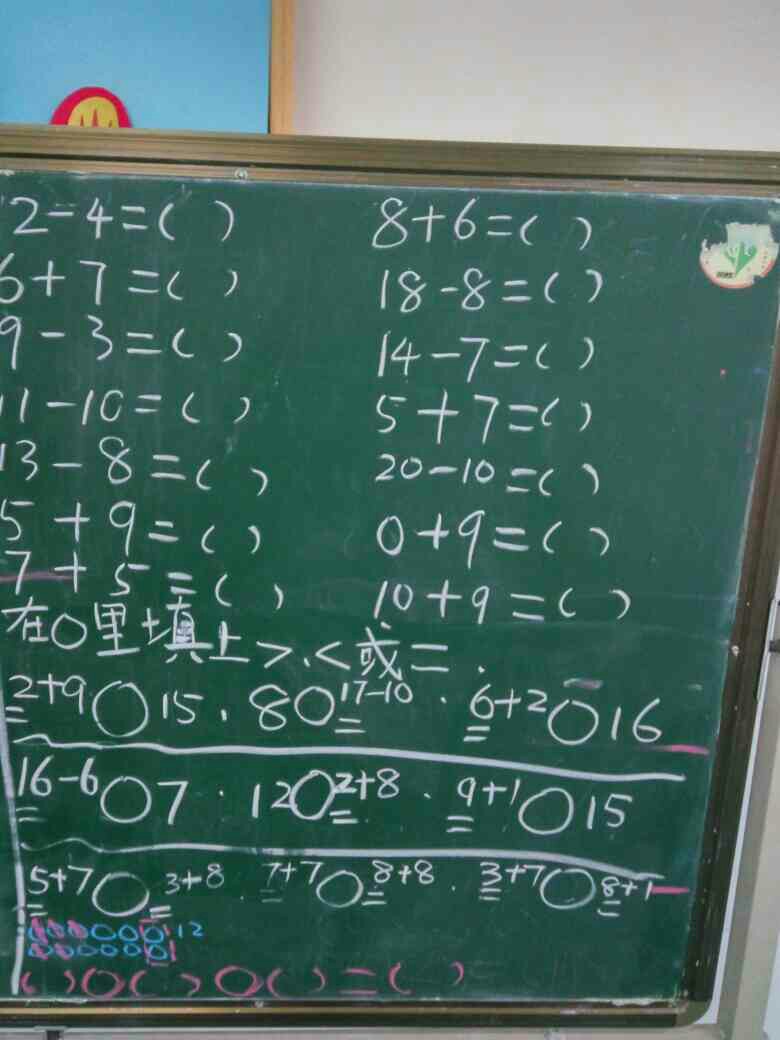 12-4=( ) 8+6=( )
6+7=( ) 18-8=( )
9-3=( ) 14-7=( )
11-10=( ) 5+7=( )
13-8=( ) 20-10=( )
5+9=( ) 0+9=( )
7+5=( ) 10+9=( )
在○里填上>.<或=.
2+9○15. 8○17-10. 6+2○16
16-6○7. 12○2+8. 9+1○15
5+7○3+8. 7+7○8+8. 3+7○8+1
12
( )○( )○( )=( )